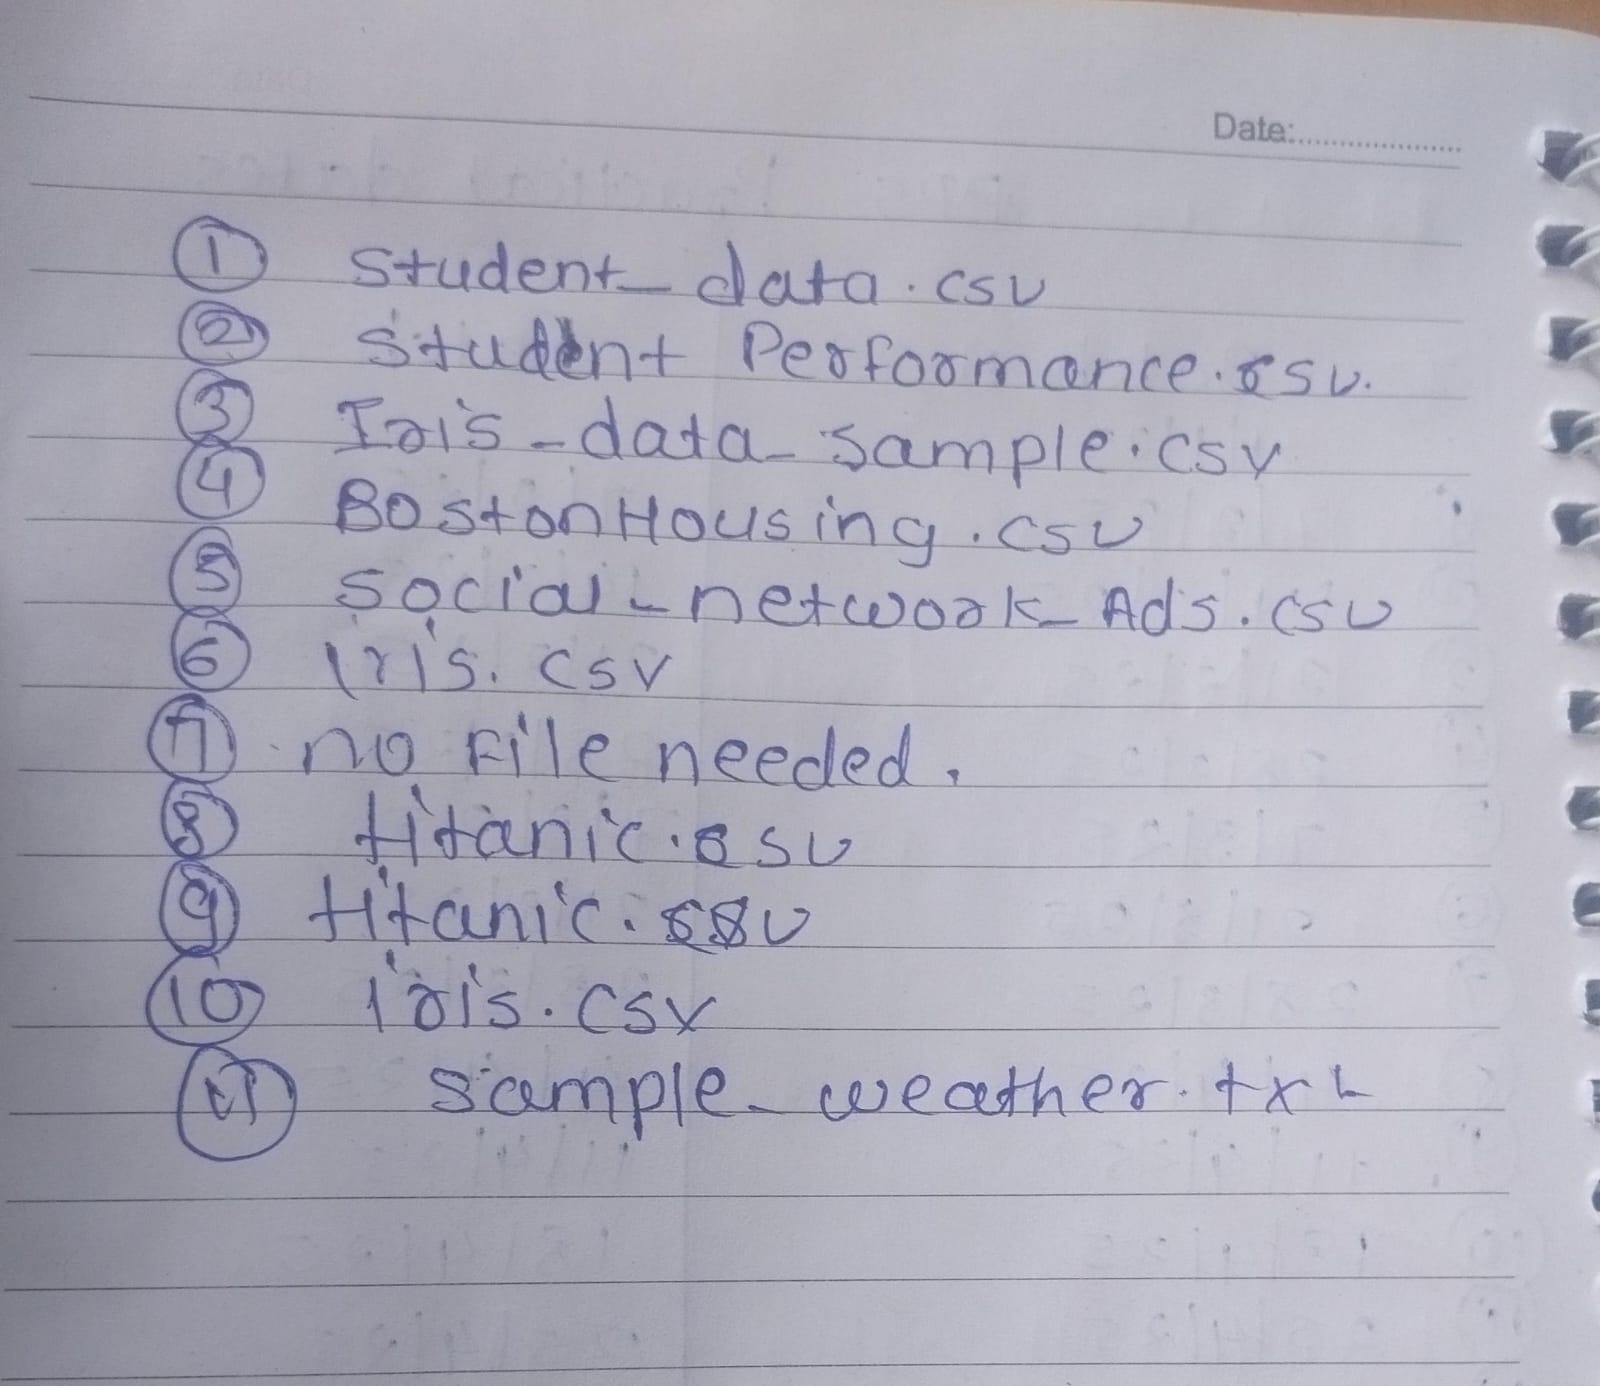 Date:
① Student_data.csv
② Student Performance.csv.
③ Iris-data_Sample.csv
④ BostonHousing.csv
⑤ Social-network_Ads.csv
⑥ Iris.csv
⑦ no File needed.
⑧ titanic.csv
⑨ titanic.csv
⑩ Iris.csv
⑪ Sample_weather.txt